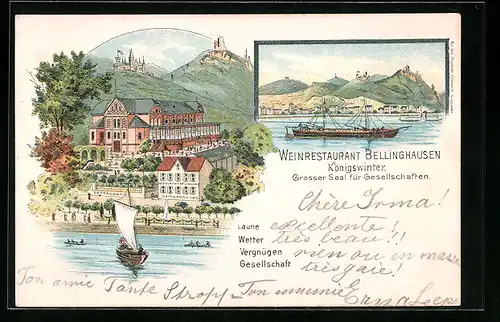 WEINRESTAURANT BELLINGHAUSEN
Königswinter.
Grosser Saal für Gesellschaften.
Chère Irma!
Laune excellente!
Wetter très beau!!
Vergnügen rien ou en masse
Gesellschaft très gaie!
Ton amie Tante Stropp - Ton ennemie Erna